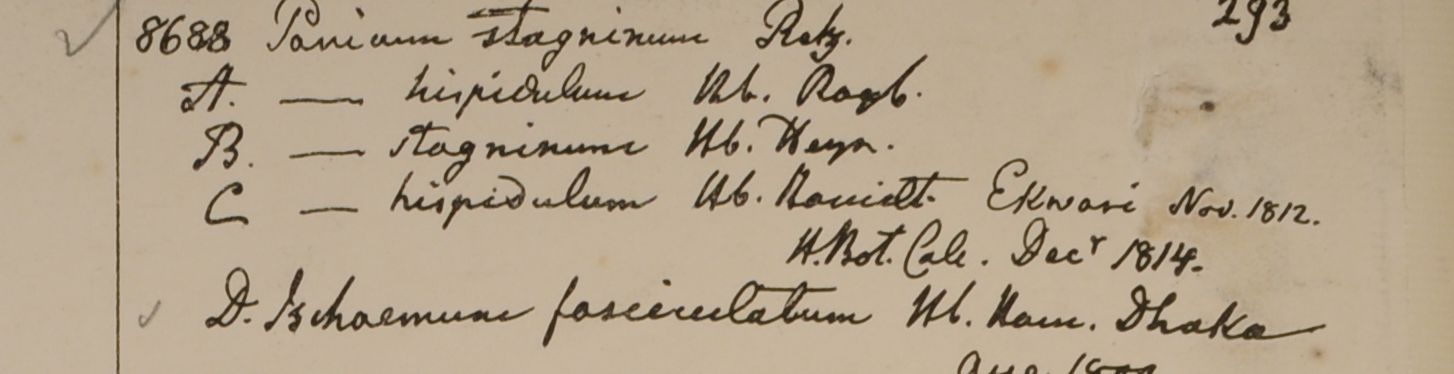 8688 Panicum stagninum Retz. 293
A. — hispidulum Hb. Roxb.
B. — stagninum Hb. Heyn.
C — hispidulum Hb. Hamilt. Ekwari Nov. 1812.
H.Bot. Calc. Decr 1814.
D. Ischaemum fasciculatum Hb. Ham. Dhaka